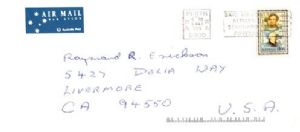 AIR MAIL
PAR AVION
Australia Post
PERTH
Raymond R. Erickson
5427 DELIA WAY
LIVERMORE
CA 94550
U.S.A.